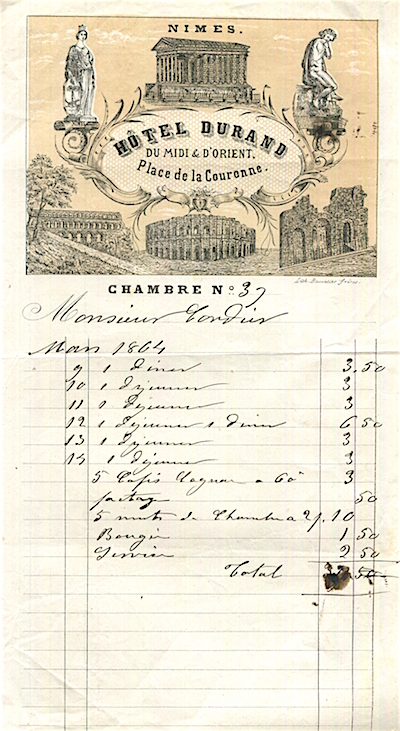 NIMES.
HÔTEL DURAND
DU MIDI & D'ORIENT.
Place de la Couronne.
CHAMBRE No. 37
Monsieur Cordier
Mars 1864
9 1 diner 3.50
10 1 dejeuner 3
11 1 dejeuner 3
12 1 dejeuner 1 diner 6 50
13 1 dejeuner 3
1 dejeuner 3
5 Cafés Cognac a 60c 3
50
5 nuits de Chambre a 2f. 10
Bougie 1 50
Service 2 50
Total 50